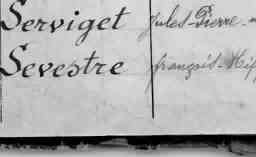 Serviget Jules-Pierre
Sevestre françois-Hip